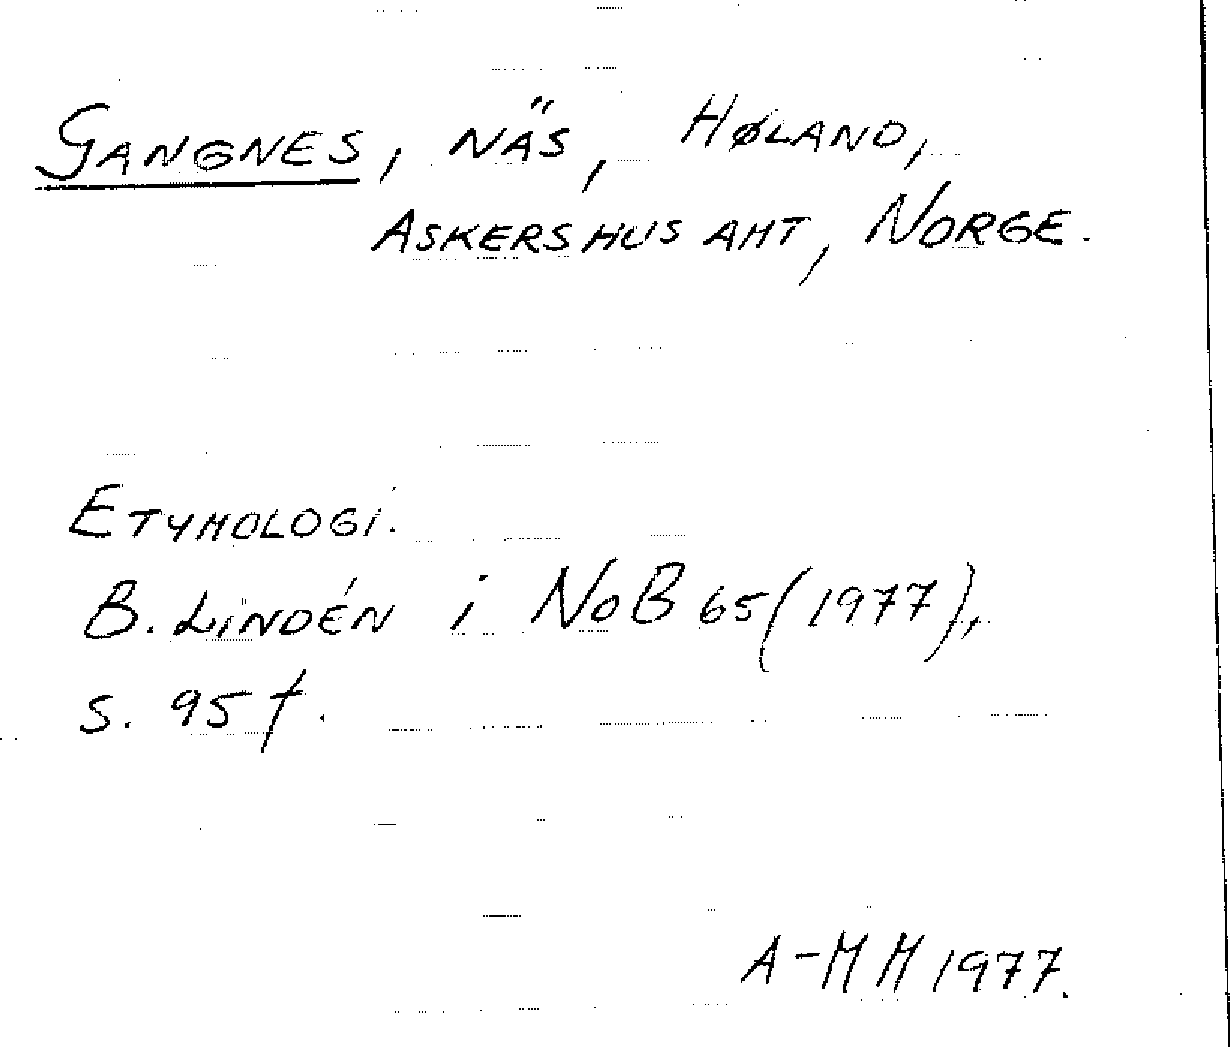 GANGNES, NÄS, HØLAND,
ASKERSHUS AMT, NORGE.
ETYMOLOGI.
B. LINDÉN i NoB 65 (1977),
s. 95 f.
A-MM 1977.